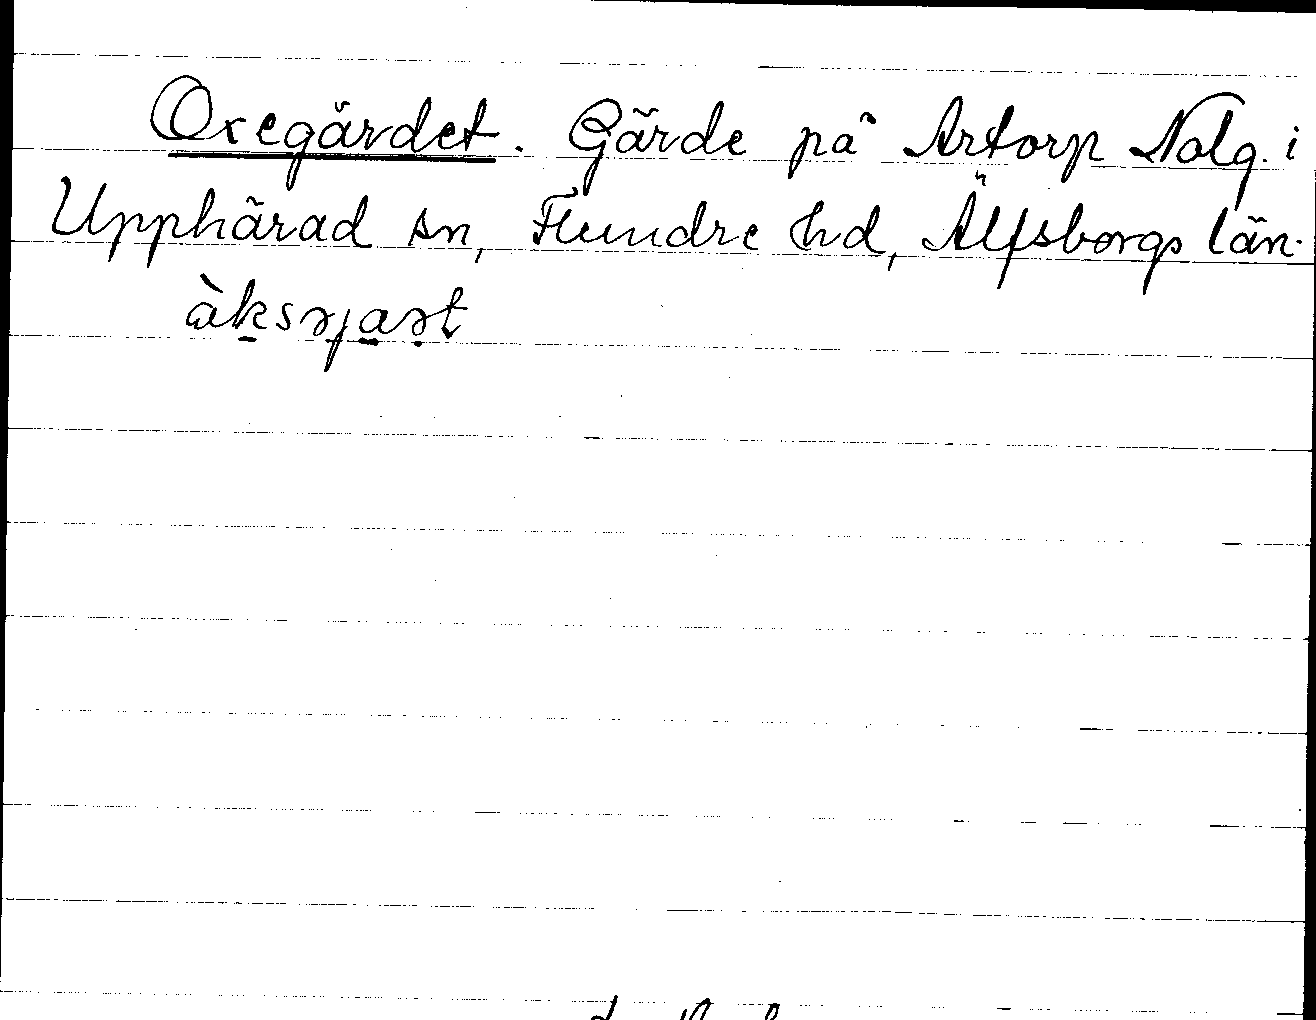 Oxegärdet. Gärde på Artorp Nolg. i
Upphärad sn, Flundre hd, Älfsborgs län.